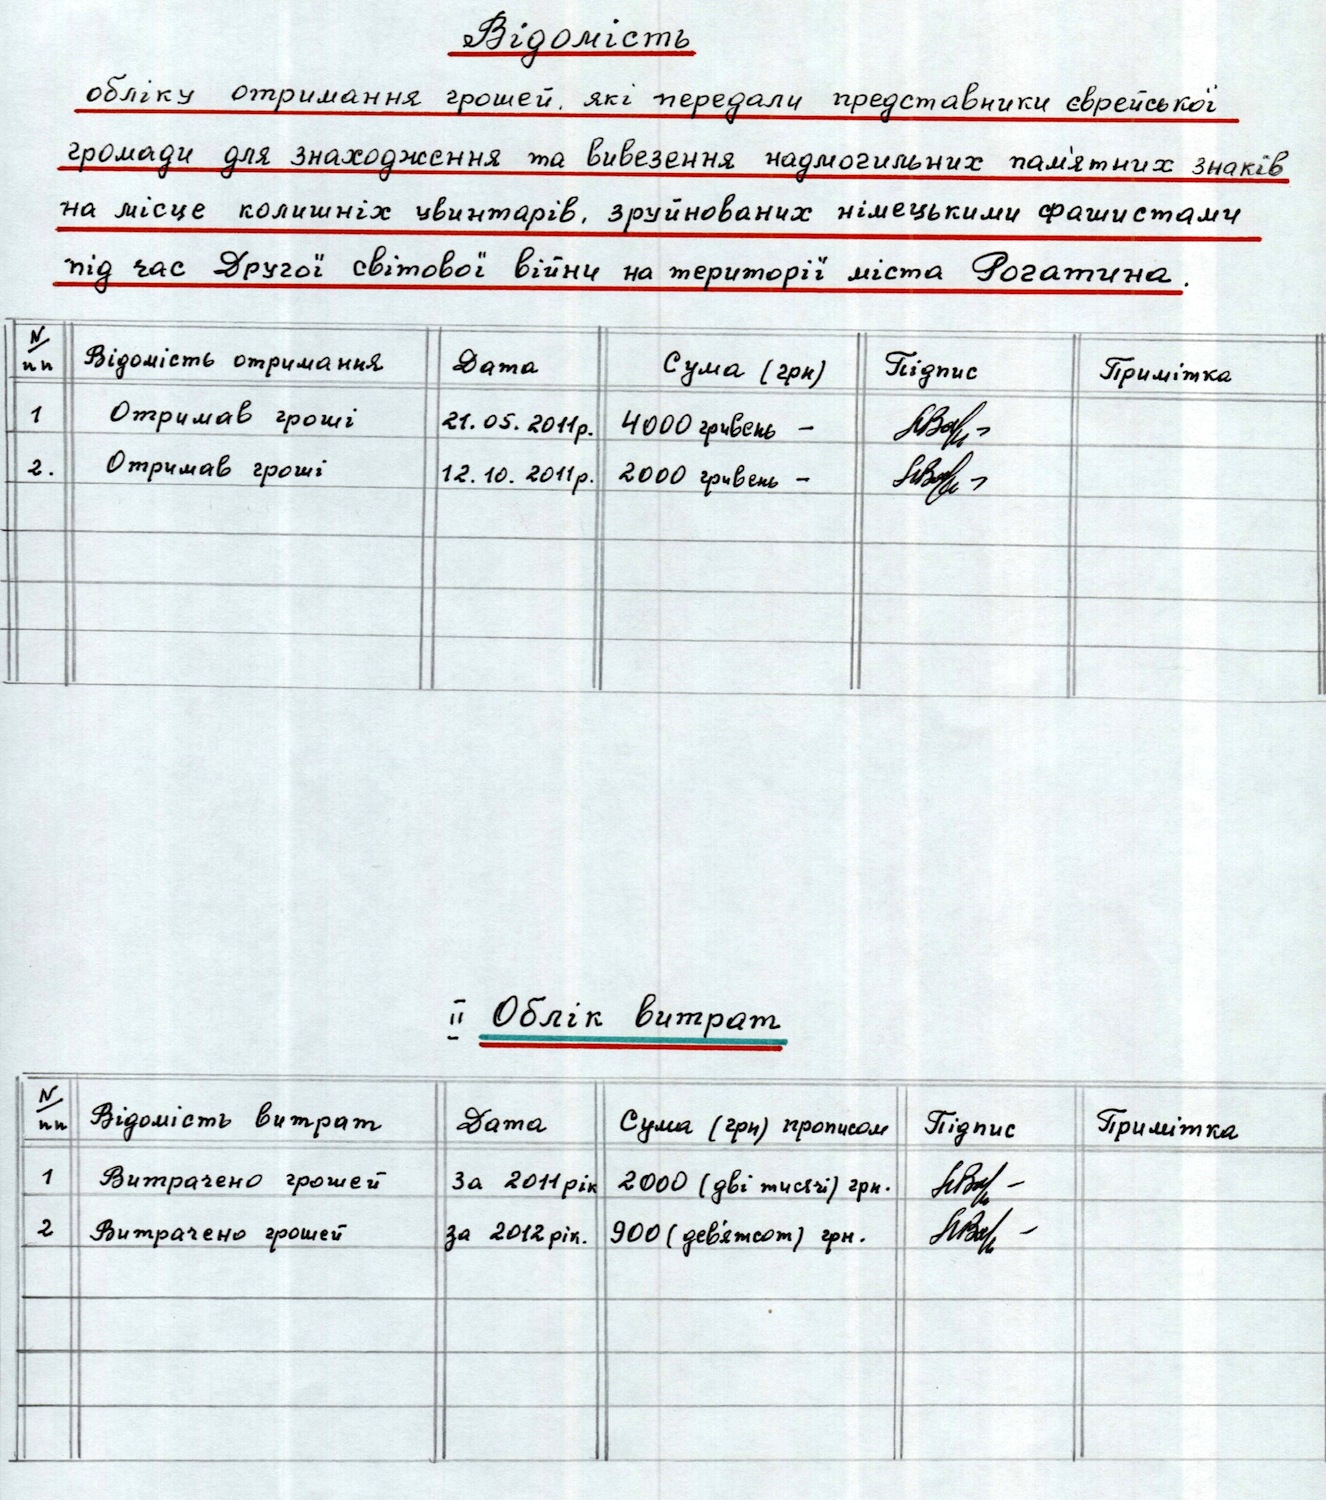 Відомість
обліку отримання грошей, які передали представники єврейської
громади для знаходження та вивезення надмогильних пам'ятних знаків
на місце колишніх цвинтарів, зруйнованих німецькими фашистами
під час Другої світової війни на території міста Рогатина.
N/пп Відомість отримання Дата Сума (грн) Підпис Примітка
1 Отримав гроші 21.05.2011р. 4000 гривень -
2. Отримав гроші 12.10.2011р. 2000 гривень -
II Облік витрат
N/пп Відомість витрат Дата Сума (грн) прописом Підпис Примітка
1 Витрачено грошей За 2011 рік 2000 (дві тисячі) грн.
2 Витрачено грошей за 2012 рік. 900 (дев'ятсот) грн.